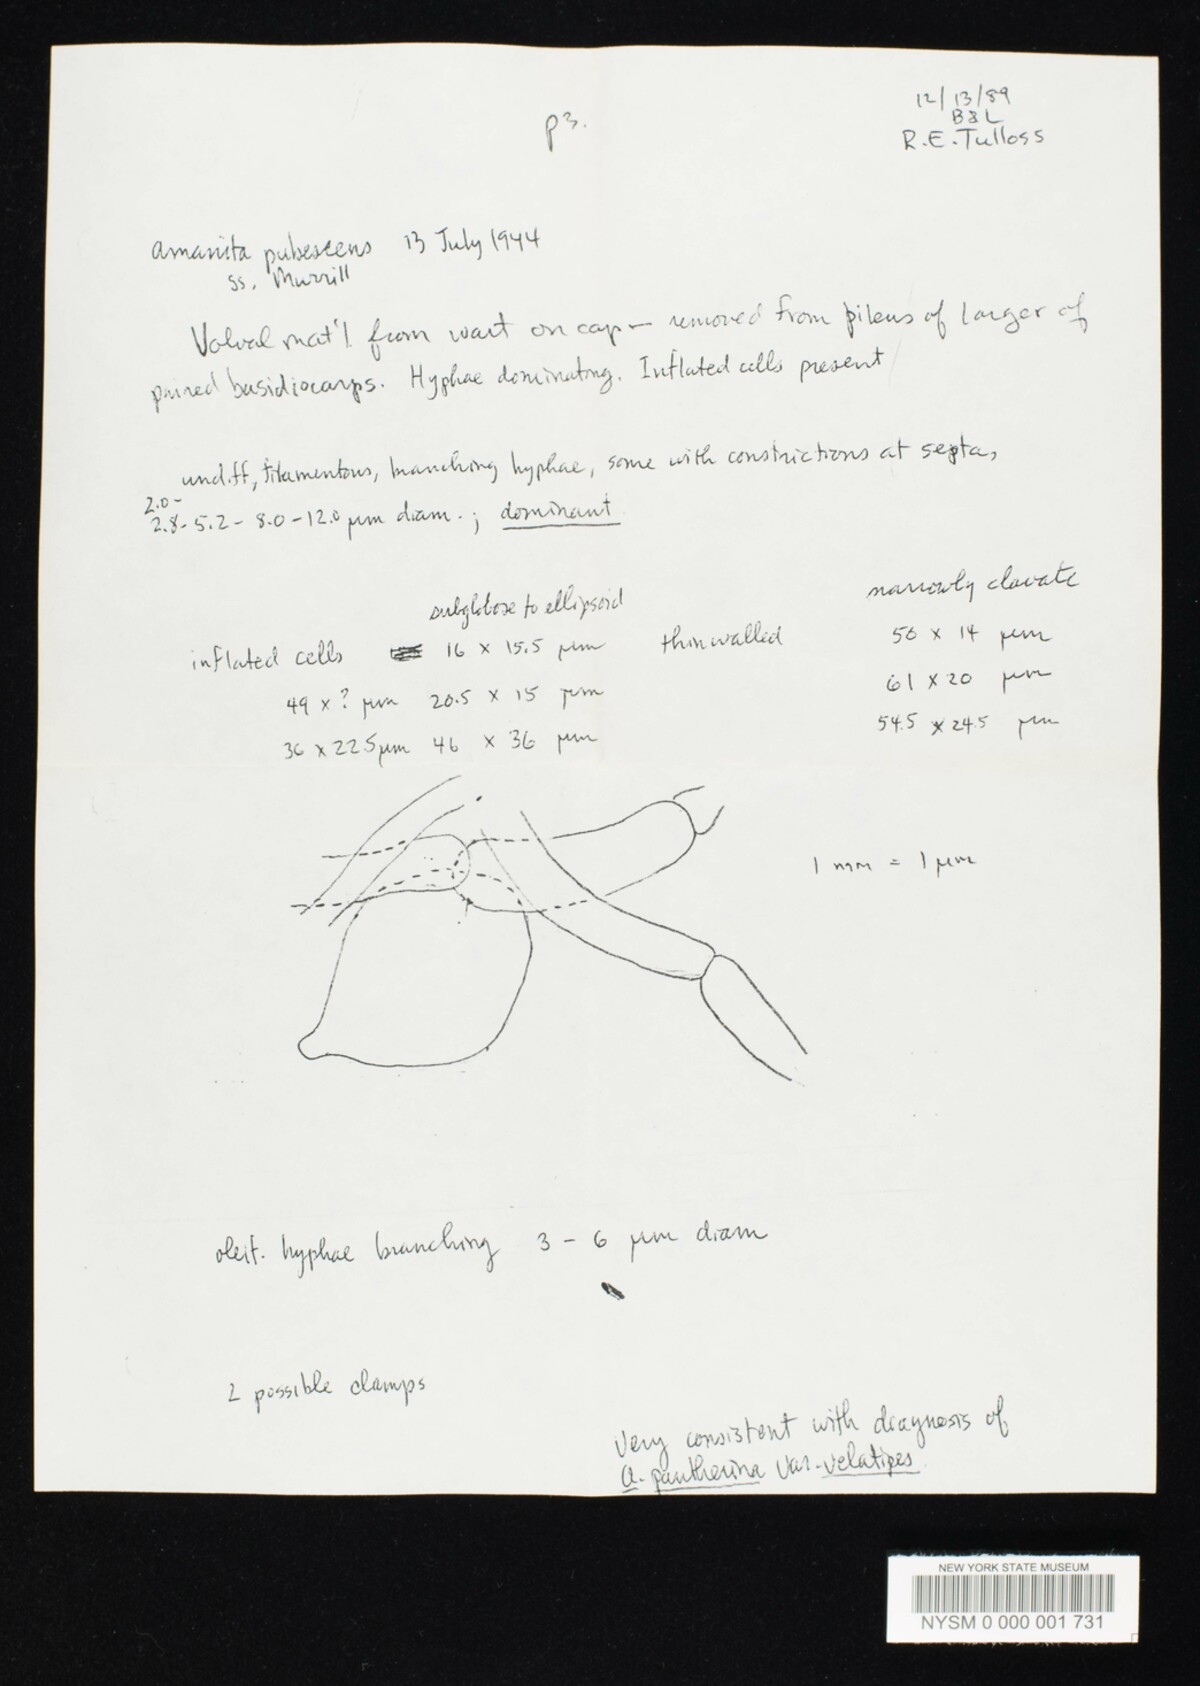 p3.
12/13/89
B&L
R.E. Tulloss
Amanita pubescens 13 July 1944
ss. Murrill
Volval mat'l from wart on cap — removed from pileus of larger of
paired basidiocarps. Hyphae dominating. Inflated cells present
undiff, filamentous, branching hyphae, some with constrictions at septa,
2.0-
2.8-5.2-8.0-12.0 µm diam.; dominant
subglobose to ellipsoid narrowly clavate
inflated cells 16 x 15.5 µm thin walled 50 x 14 µm
49 x ? µm 20.5 x 15 µm 61 x 20 µm
36 x 22.5 µm 46 x 36 µm 54.5 x 24.5 µm
1 mm = 1 µm
oleif. hyphae branching 3 - 6 µm diam
2 possible clamps
Very consistent with diagnosis of
A. pantherina var. velatipes
NEW YORK STATE MUSEUM
NYSM 0 000 001 731